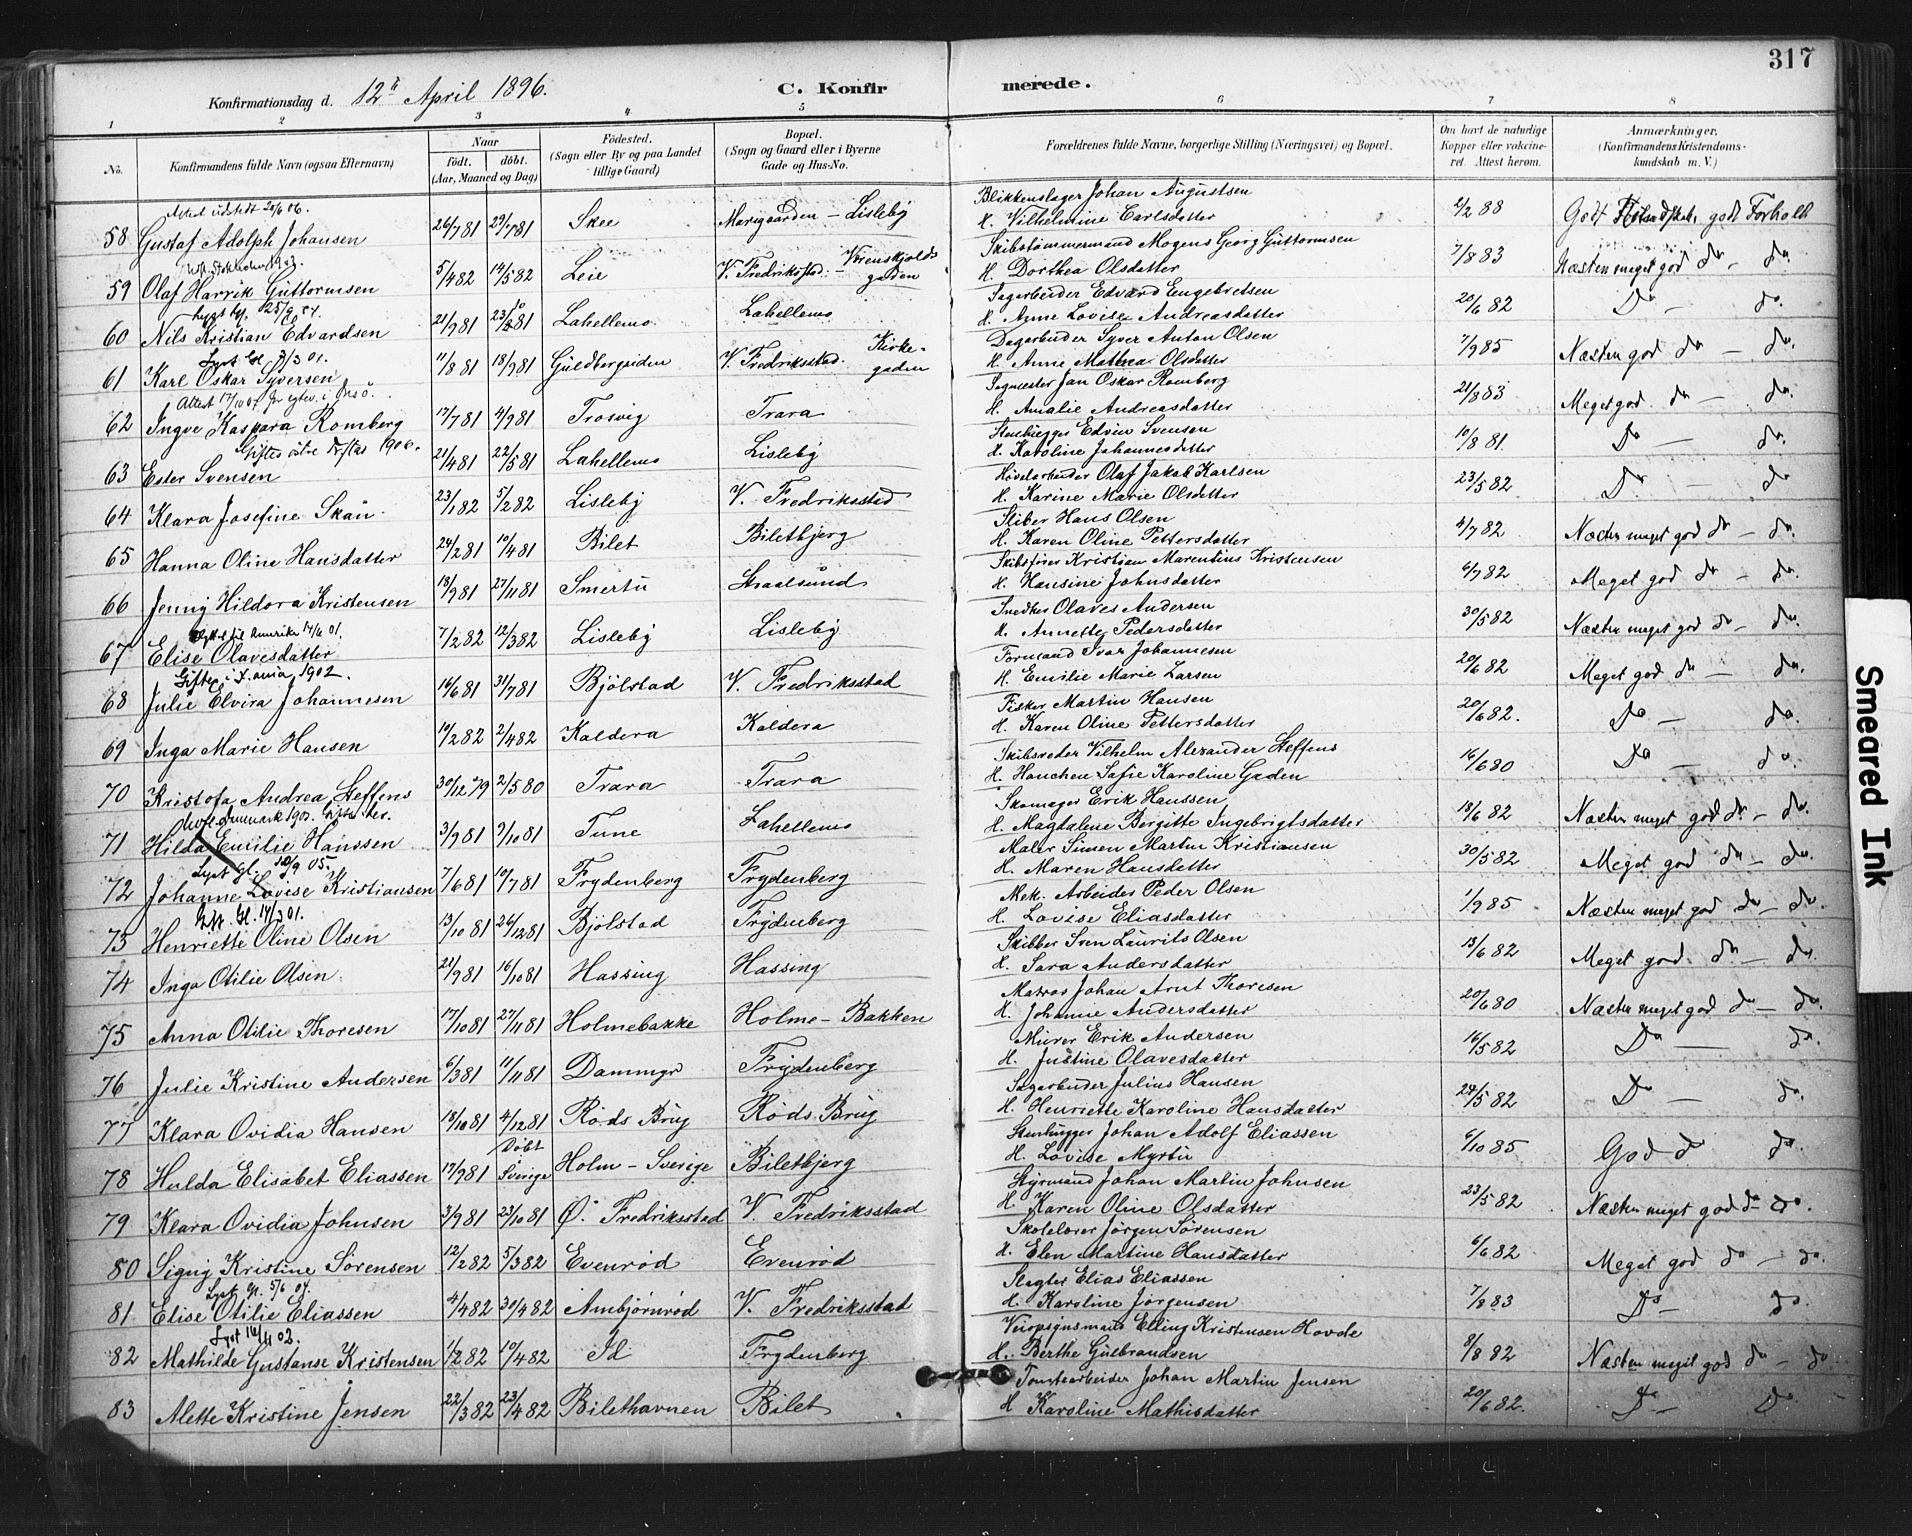 317
Konfirmationsdag d. 12te April 1896. C. Konfirmerede.
1 2 3 4 5 6 7 8
No. Konfirmandens fulde Navn (ogsaa Efternavn) Naar født. døbt. (Aar, Maaned og Dag) Fødested. (Sogn eller By og paa Landet tillige Gaard) Bopæl. (Sogn og Gaard eller i Byerne Gade og Hus-No. Forældrenes fulde Navne, borgerlige Stilling (Næringsvei) og Bopæl. Om havt de naturlige Kopper eller vakcineret. Attest herom. Anmærkninger. (Konfirmandens Kristendomskundskab m. V.)
Attest udstedt 20/6 06.
58 Gustaf Adolph Johansen 26/7 81 29/7 81 Skee Mariegaarden - Lisleby Blikkenslager Johan Augustsen H. Vilhelmine Carlsdatter 2/2 88 Godt Forhold
59 Olaf Harrik Guttormsen 5/4 82 14/5 82 Leie V. Fredriksstad - Verenskjoldsgaden Skibstømmermand Mogens Georg Guttormsen H. Dorthea Olsdatter 7/8 83 Næsten meget god do - do.
60 Nils Kristian Edvardsen 21/9 81 Lahellemo Lahellemo Sagarbeider Edvard Engebretsen H. Anne Lovise Andreasdatter 20/6 82 Do do.
Lyst Gl. 7/3 01.
61 Karl Oskar Syversen 11/8 81 18/9 81 Guldbergsiden V. Fredriksstad. Kirkegaden Dagarbeider Syver Anton Olsen H. Anne Mathea Olsdatter 7/9 85 Næsten god do - do.
Attest 17/10 07
62 Ingve Kaspara Romberg 17/7 81 4/9 81 Trosvig Trara Sagmester Jan Oskar Romberg H. Amalie Andreasdatter 21/8 83 Meget god do - do.
Giftes østre 1906.
63 Ester Svensen 21/4 81 22/5 81 Lahellemo Lisleby Stenhugger Edvin Svenson H. Karoline Johannesdatter 10/8 81 Do - do.
64 Klara Josefine Skån 23/1 82 5/2 82 Lisleby V. Fredriksstad Høvelarbeider Olaf Jakob Karlsen H. Karine Marie Olsdatter 23/5 82 Do - do
65 Hanna Oline Hansdatter 24/2 81 10/4 81 Bilet Biletbjerg Sliber Hans Olsen H. Karen Oline Pettersdatter 4/7 82 Næsten meget god do - do.
66 Jenny Hildora Kristensen 18/9 81 27/11 81 Smertu Straalsund Skibsfører Kristian Marentius Kristensen H. Hansine Johnsdatter 6/7 82 Meget god do - do.
til Amerika 14/6 01.
67 Elise Olavesdatter 7/2 82 12/3 82 Lisleby Lisleby Snedker Olaves Andersen H. Annette Pedersdatter 30/5 82 Næsten meget god do - do.
Giftes i X.ania 1902.
68 Julie Elvira Johannesen 14/6 81 31/7 81 Bjølstad V. Fredriksstad Formand Ivar Johannesen H. Emilie Marie Larsen 20/6 82 Meget god do - do.
69 Inga Marie Hansen 10/2 82 2/4 82 Kaldera Kaldera Fisker Martin Hansen H. Karen Oline Pettersdatter 20/6 82. Do - do.
70 Kristofa Andrea Steffens 30/12 79 2/5 80 Trara Trara Skibsreder Vilhelm Alexander Steffens H. Hanchen Safie Karoline Gaden 16/6 80 Do - do.
71 Hilda Emilie Hanssen 3/9 81 9/10 81 Tune Lahellemo Skomager Erik Hanssen H. Magdalene Bergitte Ingebrigtsdatter 18/6 82 Næsten meget god do - do.
Lyst Gl. 10/9 05.
72 Johanne Lovise Kristiansen 7/6 81 10/7 81 Frydenberg Frydenberg Maler Simen Martin Kristiansen H. Maren Hansdatter 30/5 82 Meget god do - do.
Gl. 14/3 01.
73 Henriette Oline Olsen 13/10 81 26/12 81 Bjølstad Frydenberg Mek. Arbeider Peder Olsen H. Lovise Eliasdatter 1/9 85 Næsten meget god do - do.
74 Inga Otilie Olsen 21/9 81 16/10 81 Hassing Hassing Skibber Sven Laurits Olsen H. Sara Andersdatter 13/6 82 Meget god. do - do.
75 Anna Otilie Thoresen 17/10 81 27/11 81 Holmebakke Holme-Bakken Matros Johan Arnt Thoresen H. Johanne Andersdatter 20/6 80 Næsten meget god do - do.
76 Julie Kristine Andersen 6/3 81 11/11 81 Dammyr Frydenberg Murer Erik Andersen H. Justine Olavesdatter 16/5 82 Do - do.
77 Klara Ovidia Hansen 18/10 81 4/12 81 Røds Brug Røds Brug Sagarbeider Julius Hansen H. Henriette Karoline Hansdatter 24/5 82 Do - do.
78 Hulda Elisabet Eliassen 17/9 81 Døbt Sverige Holm - Sverige Biletbjerg Stenhugger Johan Adolf Eliassen H. Lovise Myrtu 6/10 85 God do do.
79 Klara Ovidia Johnsen 3/9 81 23/10 81 Ø. Fredriksstad V. Fredriksstad Styrmand Johan Martin Johnsen H. Karen Oline Olsdatter 23/5 82 Næsten meget god do do.
80 Signy Kristine Sørensen 12/2 82 5/3 82 Evenrød Evenrød Skolelærer Jørgen Sørensen H. Elen Martine Hansdatter 6/6 82 Meget god do - do.
Lyst Gl. 5/6 04.
81 Elise Otilie Eliassen 4/4 82 30/4 82 Ambjørnrød V. Fredriksstad Slagter Elias Eliassen H. Karoline Jørgensen 7/8 83 Do - do.
Lyst 16/11 02.
82 Mathilde Gustanse Kristensen 1/2 82 10/4 82 Id Frydenberg Elling Kristensen Hovde H. Berthe Gulbrandsen 8/8 82 Næsten meget god do - do
83 Alette Kristine Jensen 22/3 82 23/4 82 Bilethavnen Bilet Tomtearbeider Johan Martin Jensen H Karoline Mathisdatter 20/6 82. Do - Do.
Smeared Ink